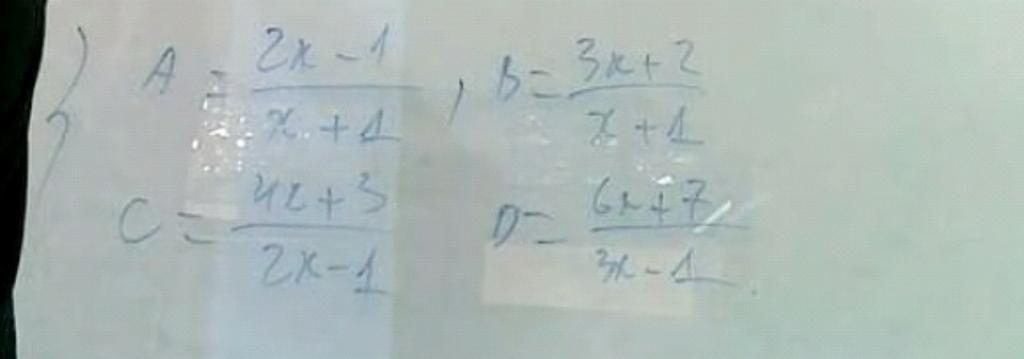 ) A = \frac{2x-1}{x+1} , B = \frac{3x+2}{x+1}
C = \frac{4x+3}{2x-1} D = \frac{6x+7}{3x-1} .